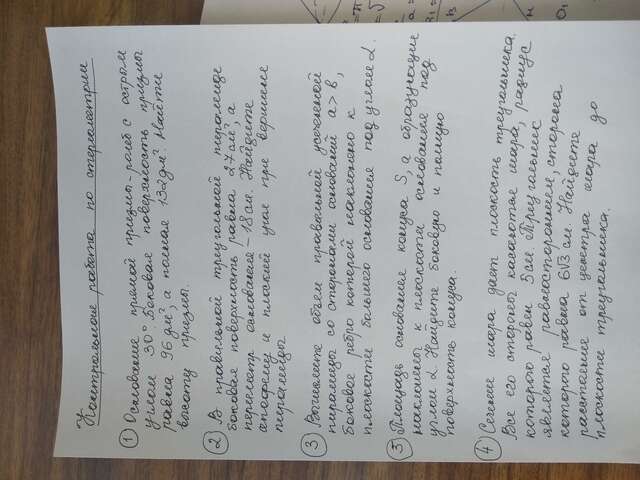 Контрольные работа по стереометрии
① Основание прямой призмы-ромб с острым
углом 30°. Боковая поверхность призмы
равна 96 дм², а полная 132 дм. Найти
высоту призмы.
② В правильной треугольной пирамиде
боковая поверхность равна 27 см², а
периметр основания - 18 см. Найдите
апофему и плоский угол при вершине
пирамиды
③ Вычислите объем правильной усеченной
пирамиды со сторонами оснований a > b,
боковое ребро которой наклонено к
плоскости большего основания под углом α.
⑤ Площадь основания конуса S, а образующие
наклонены к плоскости основания под
углом α. Найдите боковую и полную
поверхность конуса.
④ Сечение шара дает плоскость треугольника.
Все его стороны касаются шара, радиус
которого равен 5 см. Треугольник
является равносторонним, сторона
которого равна 6√3 см. Найдите
расстояние от центра шара до
плоскости треугольника.